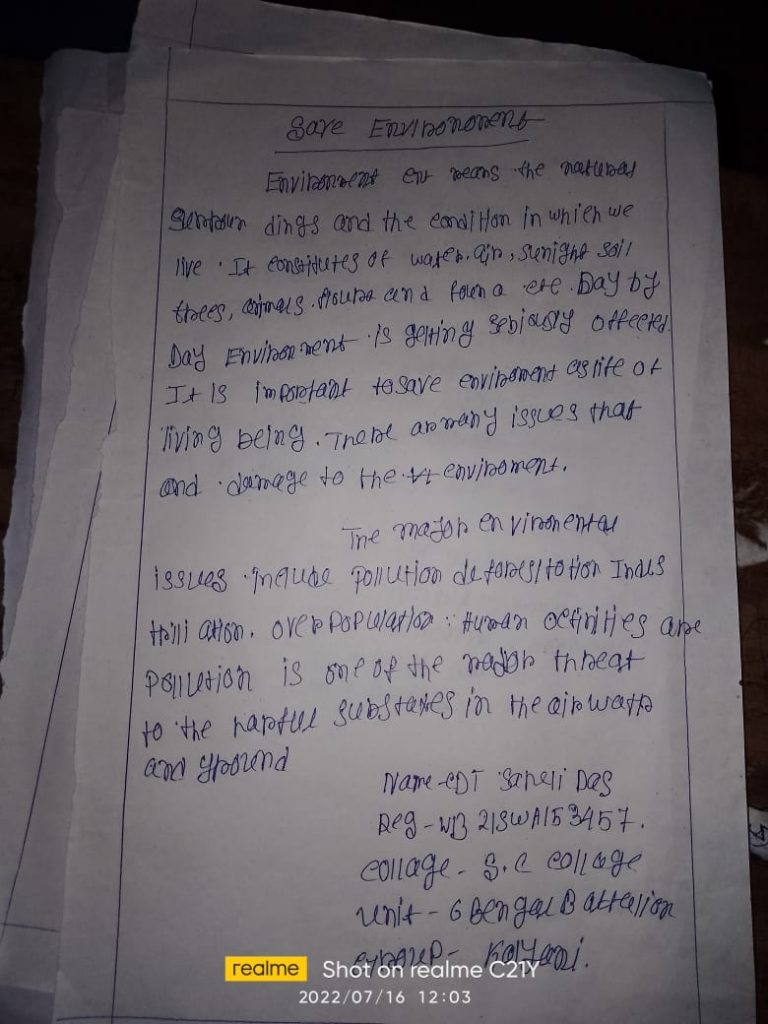 Save Environonent
Environment en means the natural
Surroun dings and the condition in which we
live. It constitutes of water, air, sunight soil
trees, animals. floura and founa ete. Day by
Day Environment is getting seriously offected
It is important to save enviroment as life of
living being. There ar many issues that
and damage to the enviroment.
The major environmental
issues include pollution deforestation Indus
trilli ation. over population: Human octivities are
Pollution is one of the major threat
to the substaxes in the air watr
and ground
Name - CDT Saheli Das
Reg - WB 21SWA153457.
collage - S.C collage
unit - 6 Bengal Battalion
group - Kalyani.
realme Shot on realme C21Y
2022/07/16 12:03